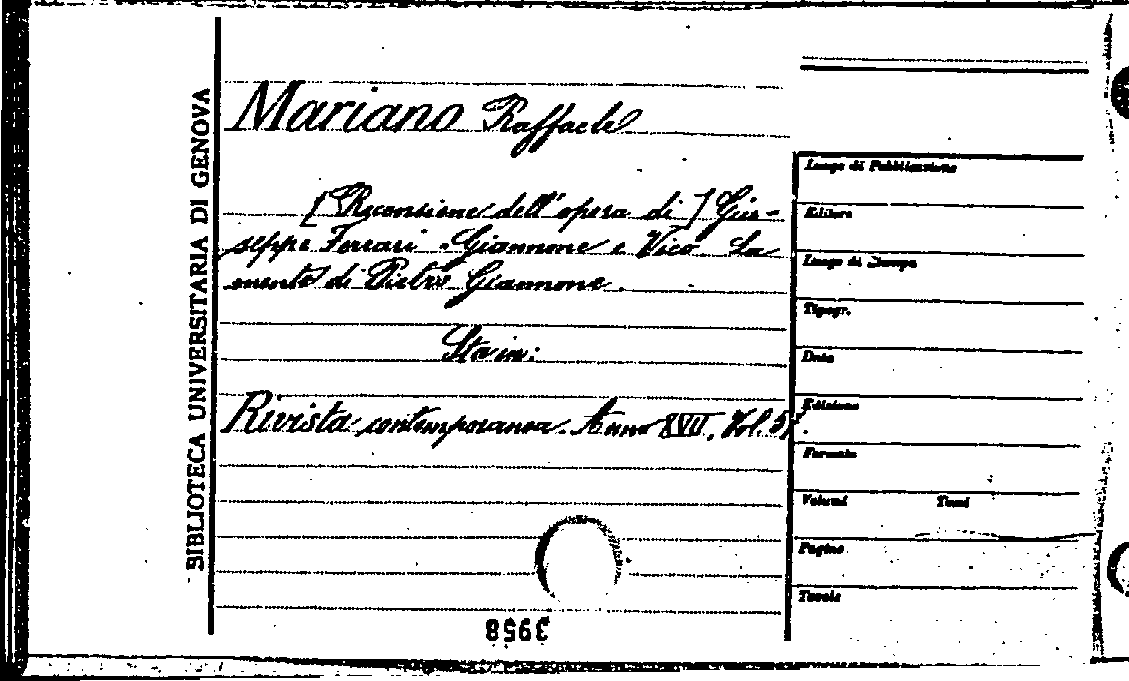 BIBLIOTECA UNIVERSITARIA DI GENOVA
Mariano Raffaele
[Recensione dell'opera di] Giu-
seppe Ferrari "Giannone e Vico. La
mente di Pietro Giannone.
Sta in:
Rivista contemporanea. Anno XVII, Vol. 57.
Luogo di Pubblicazione
Editore
Luogo di Stampa
Tipogr.
Data
Edizione
Formato
Volumi Tomi
Pagine
Tavole
3958